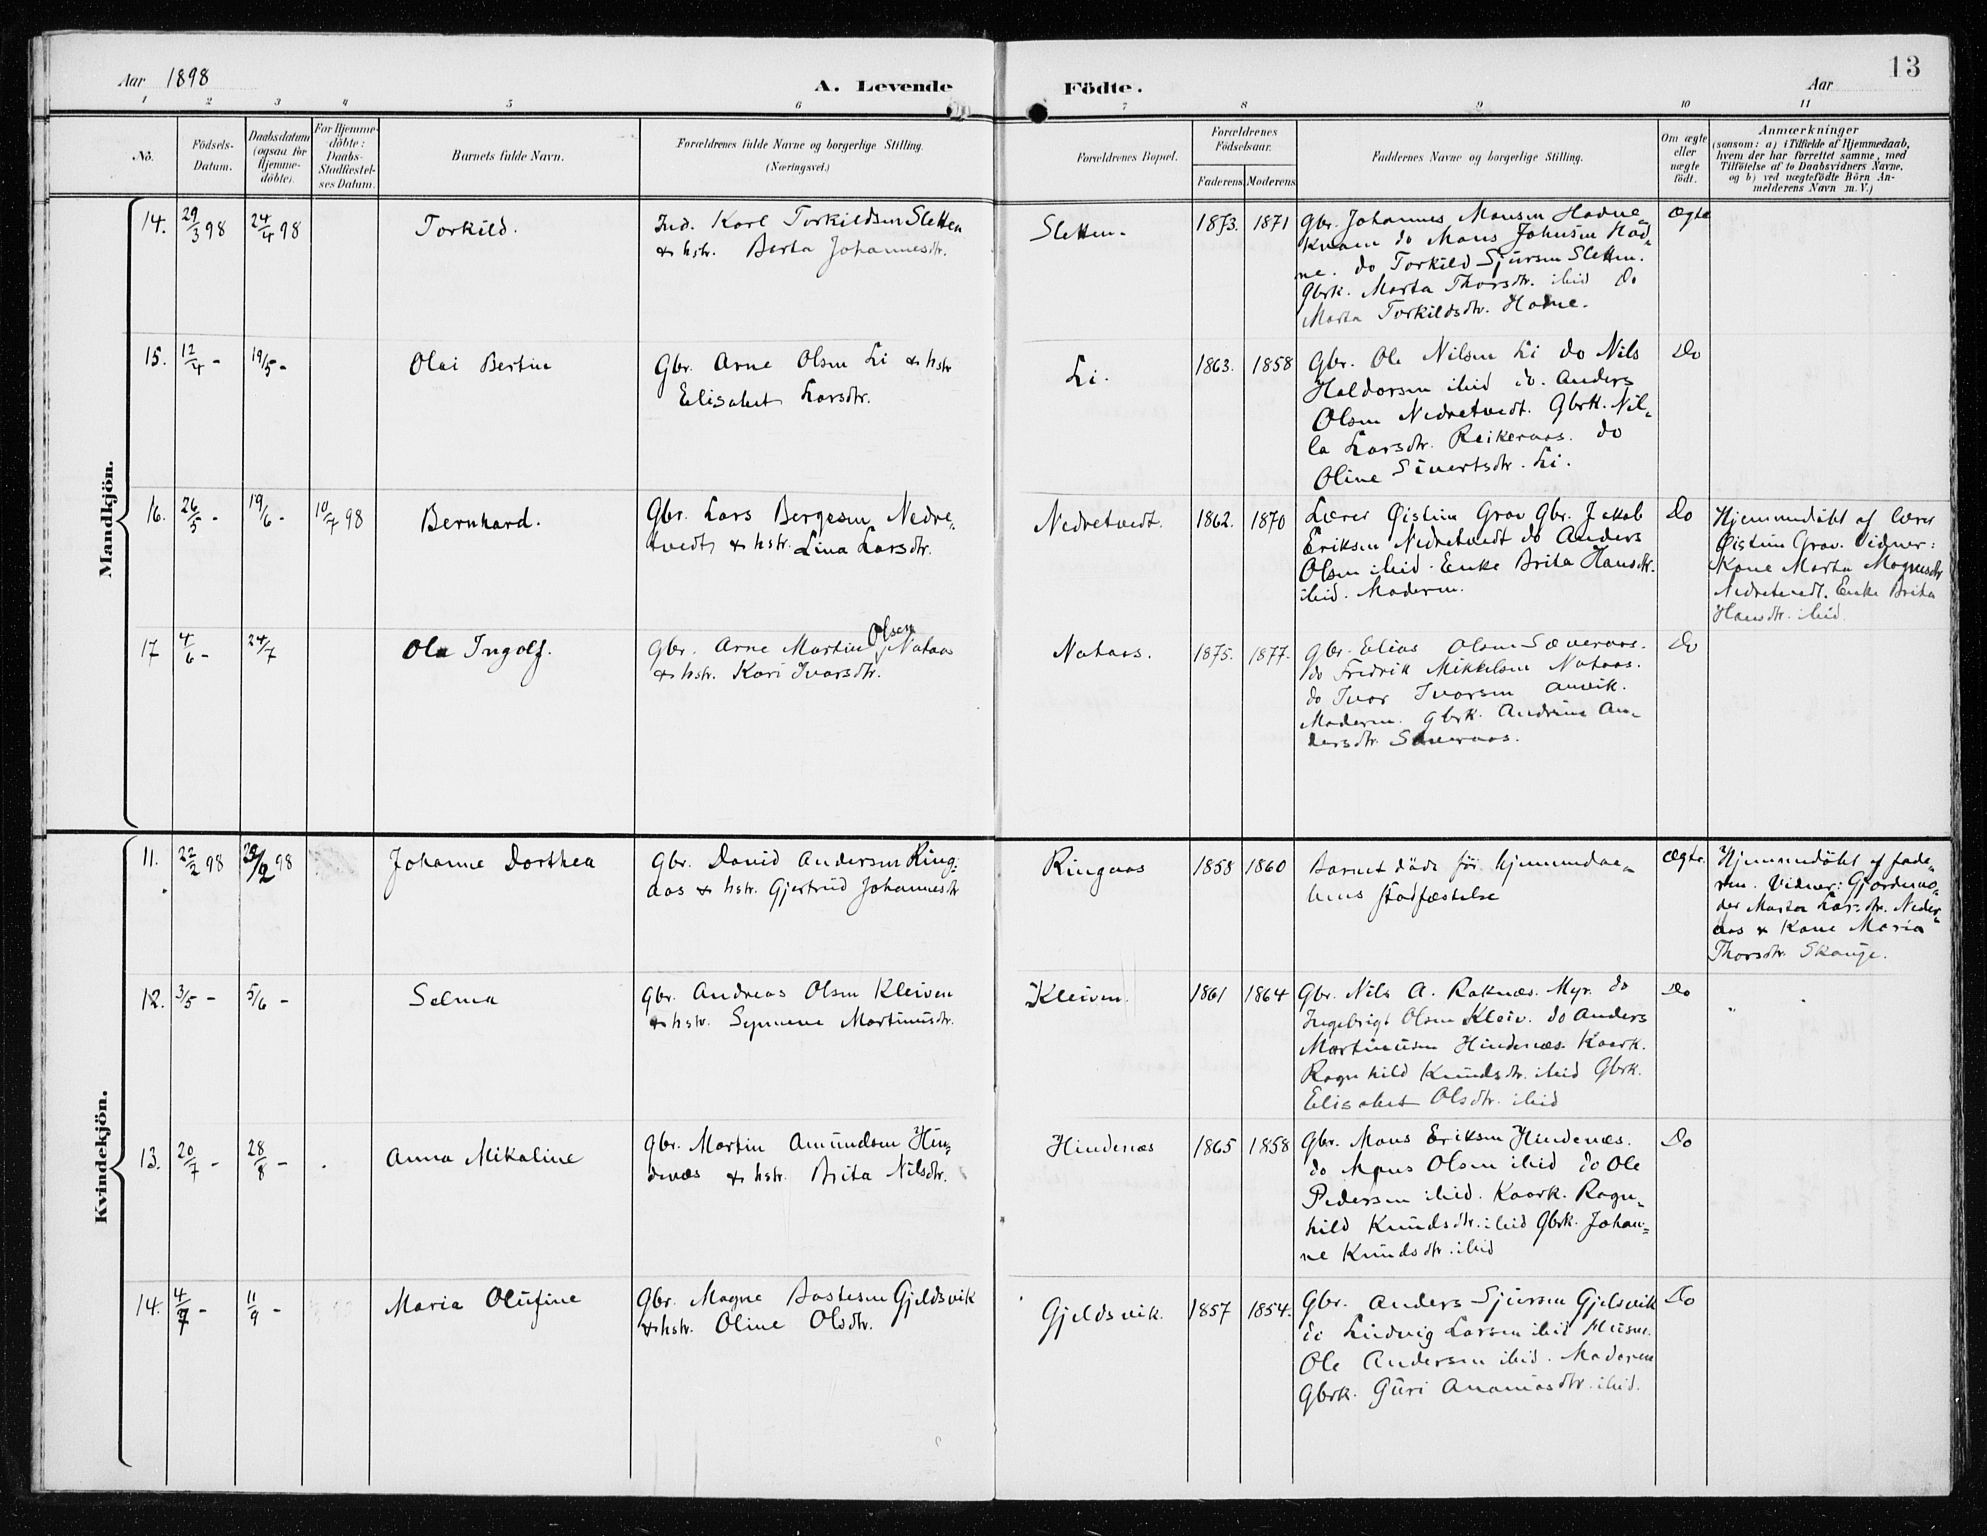 Aar 1898
A. Levende
Födte.
Aar
13
1 2 3 4 5 6 7 8 9 10 11
No.
Födsels-
Datum.
Daabsdatum
(ogsaa for
Hjemme-
döbte).
For Hjemme-
döbte:
Daabs-
Stadfæstel-
ses Datum.
Barnets fulde Navn.
Forældrenes fulde Navne og borgerlige Stilling.
(Næringsvei.)
Forældrenes Bopæl.
Forældrenes
Födselsaar.
Faderens Moderens
Faddernes Navne og borgerlige Stilling.
Om ægte
eller
uægte
födt.
Anmærkninger
(saasom: a) i Tilfælde af Hjemmedaab,
hvem der har forrettet samme, med
Tilföielse af to Daabsvidners Navne,
og b) ved uægtefödte Börn An-
melderens Navn m. V.)
Mandkjön.
14. 29/3 98 24/4 98
Torkild.
Ind. Karl Torkildsen Sletten
& hstr. Berta Johannesdtr.
Sletten.
1873. 1871
Gbr. Johannes Monsen Hodne-
kvam do Mons Johnsen Hod-
ne. do Torkild Sjursen Sletten.
Gbrk. Marta Thorsdtr. ibid do
Marta Torkildsdtr. Hodne.
ægte
15. 12/4 - 19/5 -
Olai Bertin
Gbr. Arne Olsen Li & hstr
Elisabet Larsdtr.
Li.
1863. 1858
Gbr. Ole Nilsen Li do Nils
Haldorsen ibid do. Anders
Olsen Nedretvedt. Gbrk. Nil-
la Larsdtr. Reikeraas. do
Oline Sivertsdtr. Li.
Do
16. 26/5 - 19/6 - 10/7 98
Bernhard.
Gbr. Lars Bergesen Nedre-
tvedt & hstr. Lina Larsdtr.
Nedretvedt.
1862. 1870
Lærer Øistein Grov Gbr. Jakob
Eriksen Nedretvedt do Anders
Olsen ibid. Enke Brita Hansdtr.
ibid. Moderen.
Do
Hjemmedöbt af lærer
Øistein Grov. Vidner:
Kone Marta Magnesdtr
Nedretvedt. Enke Brita
Hansdtr. ibid.
17 4/6 - 24/7
Ole Ingolf.
Olsen
Gbr. Arne Martin Nataas
& hstr. Kari Ivarsdtr.
Nataas.
1875. 1877.
Gbr. Elias Olsen Sæveraas.
do Fredrik Mikkelsen Nataas.
do Ivar Ivarsen Anvik.
Moderen. Gbrk. Andrine An-
dersdtr. Sæveraas.
Do
Kvindekjön.
11. 22/2 98 28/2 98
Johanne Dorthea
Gbr. David Andersen Ring-
aas & hstr. Gjertrud Johannesdtr
Ringaas
1858 1860
Barnet döde för hjemmedaa-
bens stadfæstelse
ægte.
Hjemmedöbt af fade-
ren. Vidner: Gjordemo-
der Marta Larsdtr. Neder-
aas & Kone Maria
Thorsdtr. Skauge.
12. 3/5 - 5/6 -
Selma
Gbr. Andreas Olsen Kleiven
& hstr. Synneve Martinusdtr.
Kleiven.
1861 1864
Gbr. Nils A. Raknæs. Myr. do
Ingebrigt Olsen Kleiv. do Anders
Martinusen Hindenæs Kaark.
Ragnhild Knudsdtr. ibid Gbrk.
Elisabet Olsdtr. ibid
Do
13. 20/7 - 28/8 -
Anna Mikaline
Gbr. Martin Amundsen Hin-
denæs & hstr. Brita Nilsdtr.
Hindenæs
1865 1858
Gbr. Mons Eriksen Hindenæs.
do Mons Olsen ibid do Ole
Pedersen ibid. Kaark. Ragn-
hild Knudsdtr. ibid Gbrk. Johan-
ne Knudsdtr. ibid
Do
14. 4/7 - 11/9 -
Maria Olufine
Gbr. Magne Bastesen Gjeldsvik
& hstr. Oline Olsdtr.
Gjeldsvik.
1857 1854.
Gbr. Anders Sjursen Gjelsvik
do Ludvig Larsen ibid Husm.
Ole Andersen ibid. Moderen
Gbrk. Guri Ananiasdtr. ibid.
Do